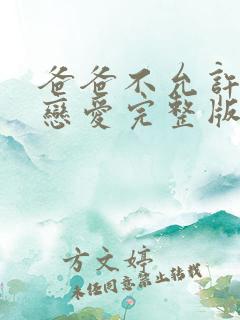 爸爸不允許
戀愛完整版
方文婷
未經同意禁止轉載